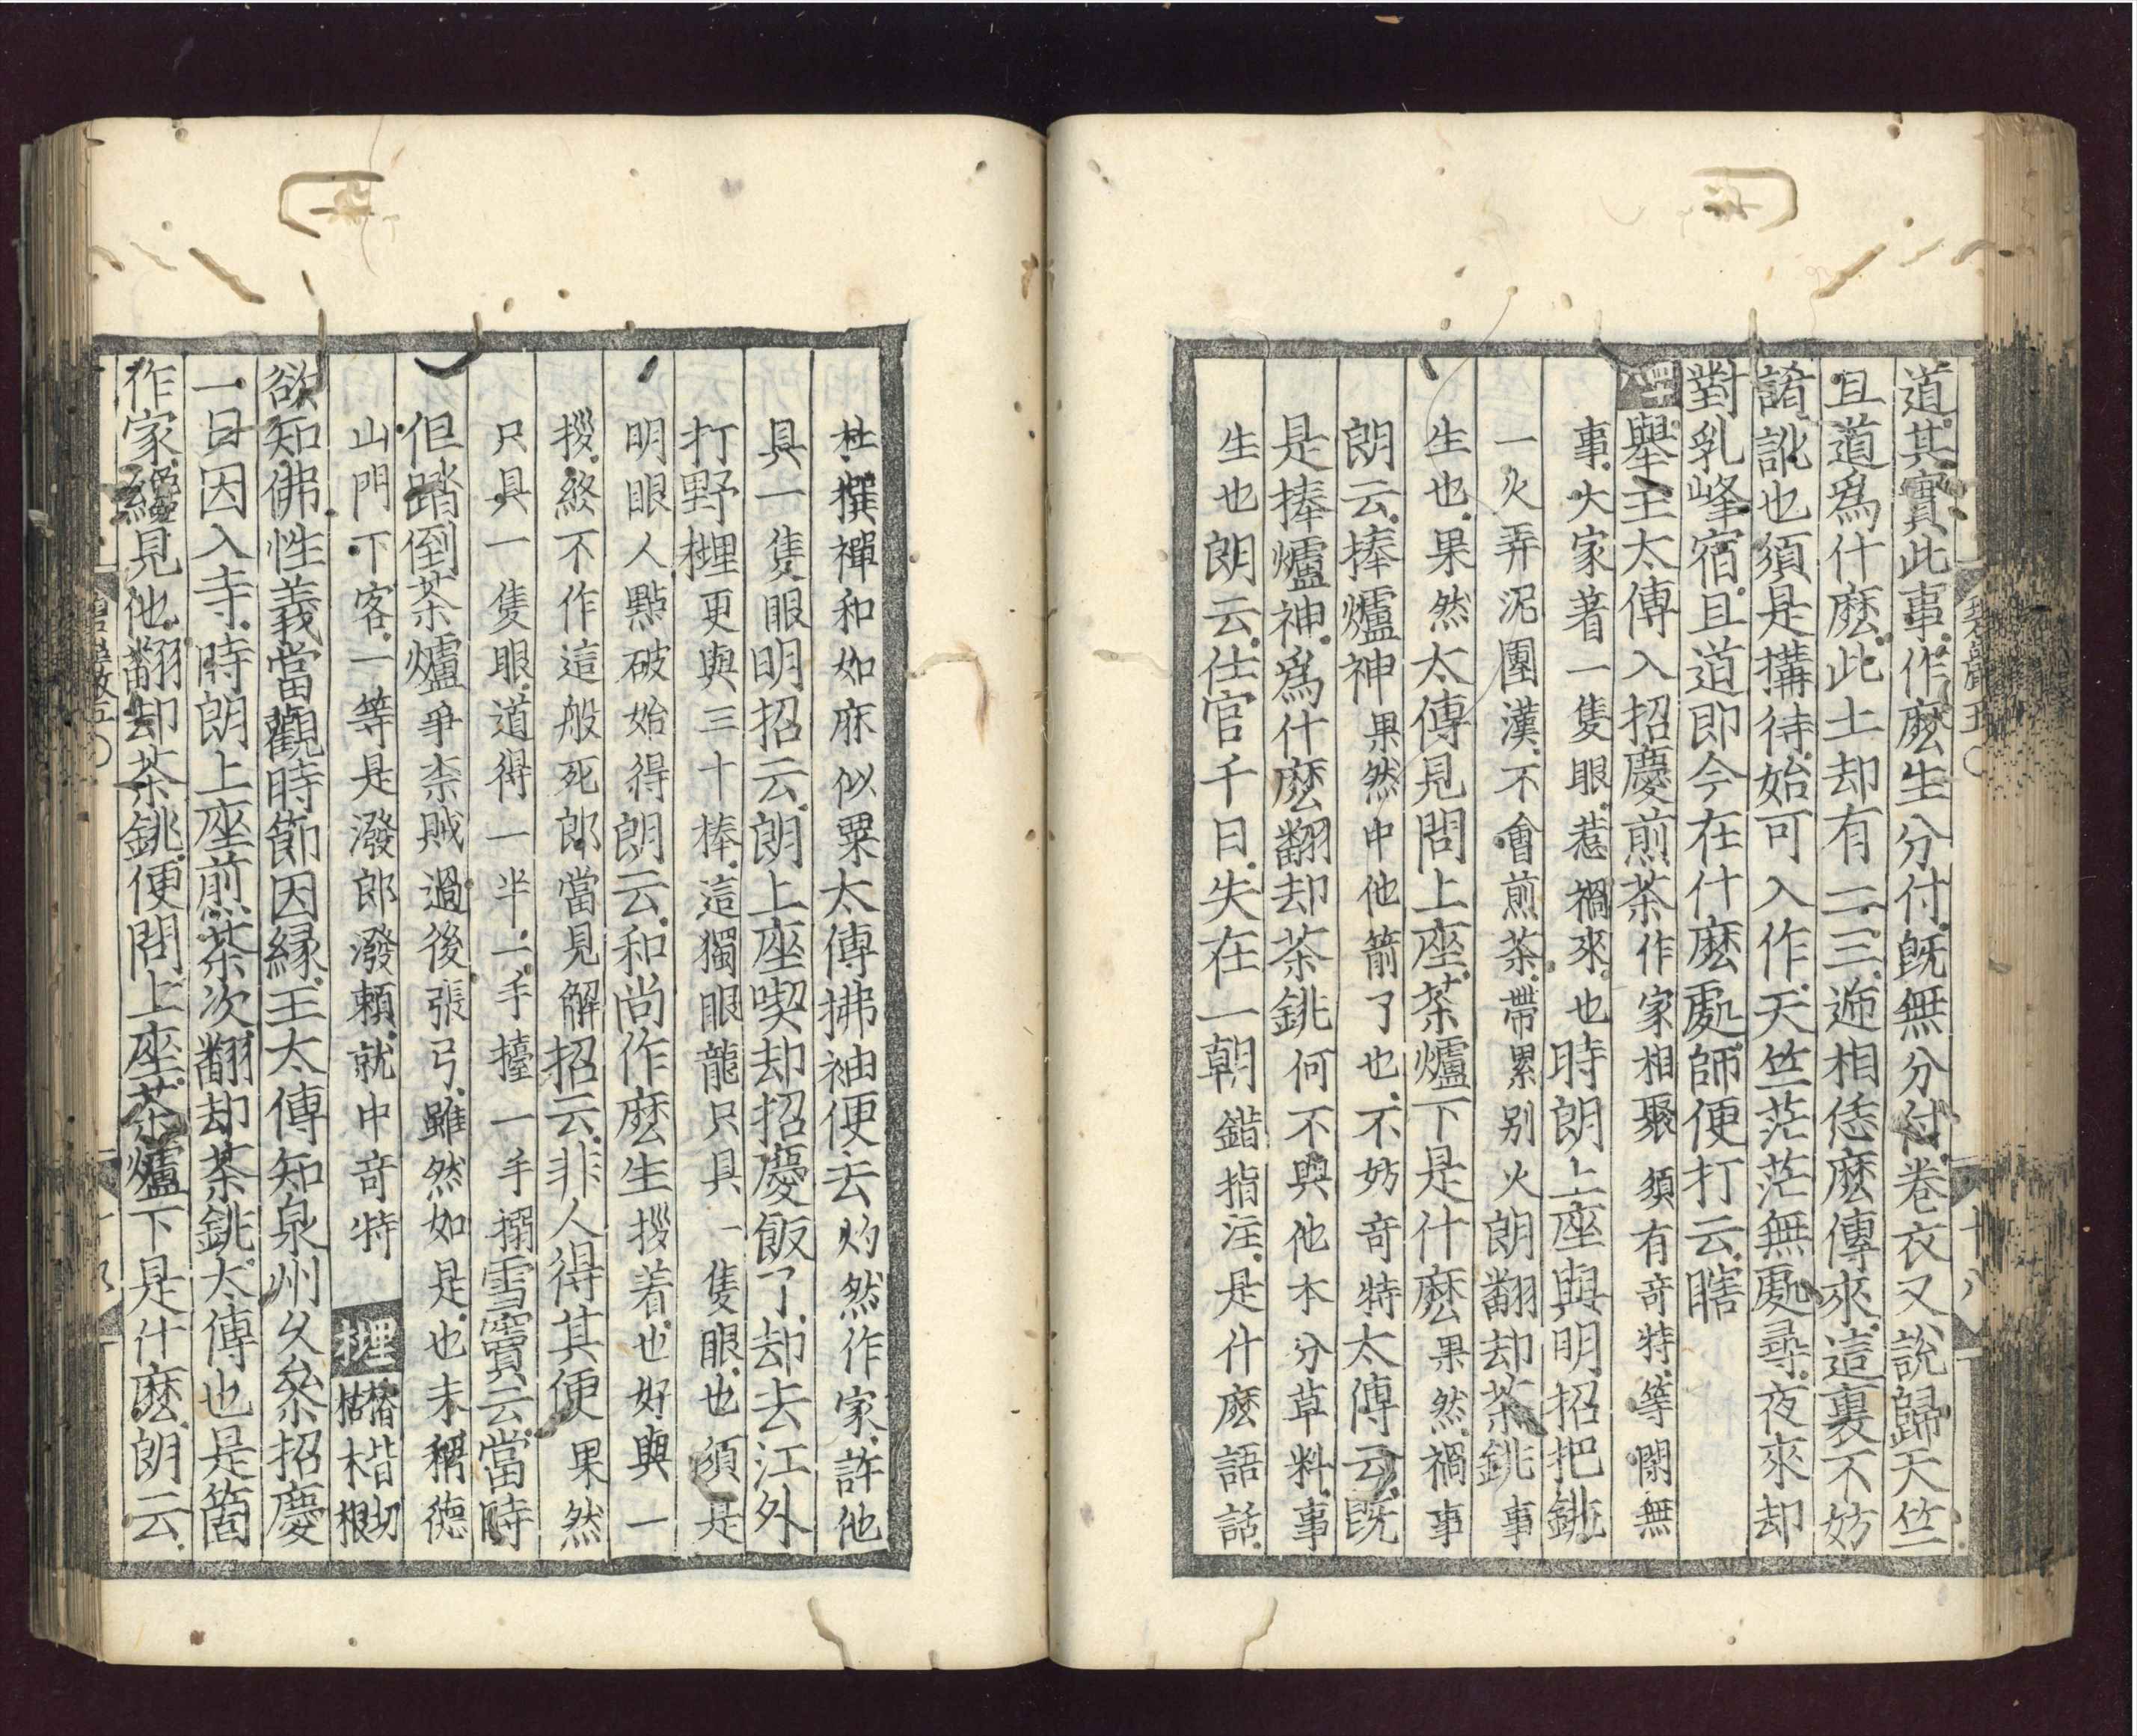 道其實此事作麽生分付既無分付卷衣又說歸天竺
且道爲什麽此土却有二三遞相恁麽傳來這裏不妨
誵訛也須是搆待始可入作天竺茫茫無處尋夜來却
對乳峰宿且道即今在什麽處師便打云瞎
舉王太傅入招慶煎茶作家相聚須有竒特等閑無
事大家著一隻眼惹禍來也時朗上座與明招把銚
一火弄泥團漢不會煎茶帶累别火朗翻却茶銚事
生也果然太傅見問上座茶爐下是什麽果然禍事
朗云捧爐神果然中他箭了也不妨竒特太傅云既
是捧爐神爲什麽翻却茶銚何不與他本分草料事
生也朗云仕官千日失在一朝錯指注是什麽語話
杜撰禪和如麻似粟太傅拂袖便去灼然作家許他
具一隻眼明招云朗上座喫却招慶飯了却去江外
打野榸更與三十棒這獨眼龍只具一隻眼也須是
明眼人點破始得朗云和尚作麽生拶着也好與一
拶煞不作這般死郎當見解招云非人得其便果然
只具一隻眼道得一半一手擡一手搦雪竇云當時
但踏倒茶爐爭柰賊過後張弓雖然如是也未稱德
山門下客一等是潑郎潑賴就中竒特榸楮皆切枯木根
欲知佛性義當觀時節因縁王太傅知泉州久叅招慶
一日因入寺時朗上座煎茶次翻却茶銚太傅也是箇
作家纔見他翻却茶銚便問上座茶爐下是什麽朗云